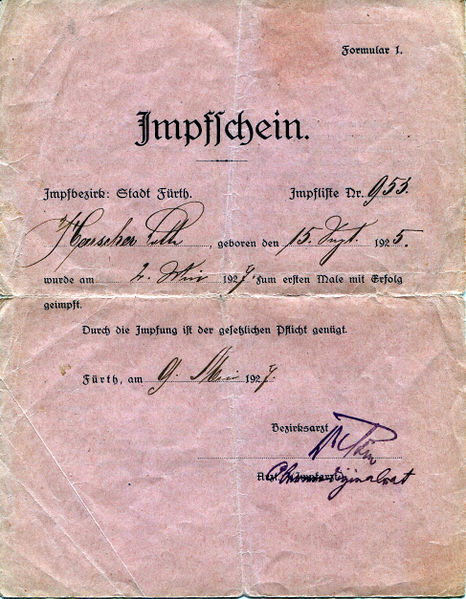 Formular 1.
Impfschein.
Impfbezirk: Stadt Fürth. Impfliste Nr. 953.
, geboren den 15. Sept. 1925.
wurde am 2. Mai 1927. zum ersten Male mit Erfolg
geimpft.
Durch die Impfung ist der gesetzlichen Pflicht genügt.
Fürth, am 9. Mai 1927.
Bezirksarzt